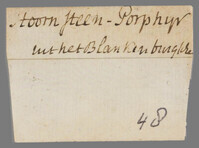 Hoornsteen-Porphyr
uit het Blankenburgsche
48